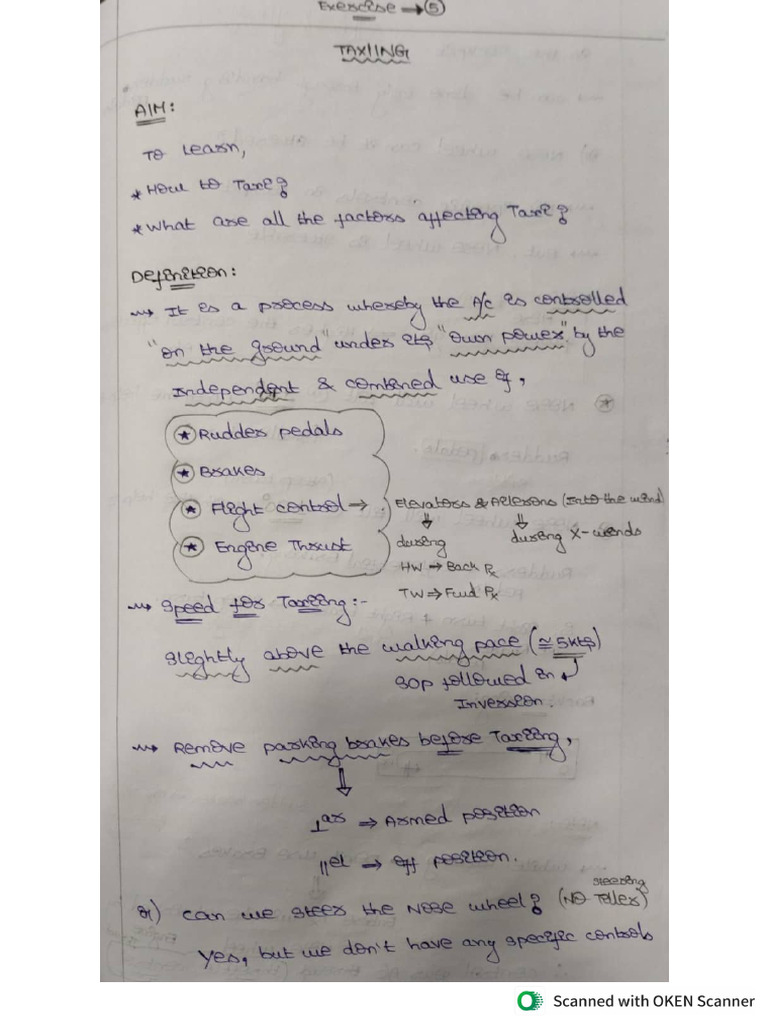 Exercise → ⑤
TAXIING
AIM:
To Learn,
* How to Taxi?
* What are all the factors affecting Taxi?
Definition:
⇝ It is a process whereby the A/c is controlled
"on the ground" under its "own power" by the
Independent & combined use of,
★ Rudder pedals
★ Brakes
★ Flight control → . Elevators & Ailerons (Into the wind)
★ Engine Thrust
during
HW → Back Px
TW ⇒ Fwd Px
during X-winds
⇝ Speed for Taxiing:-
slightly above the walking pace (≃ 5kts)
SOP followed in
Inversion.
⇝ Remove parking brakes before Taxiing,
⊥ar ⇒ Armed position
||el → off position.
Q1) can we steer the Nose wheel? (NO Tiller)
steering
Yes, but we don't have any specific controls
Scanned with OKEN Scanner